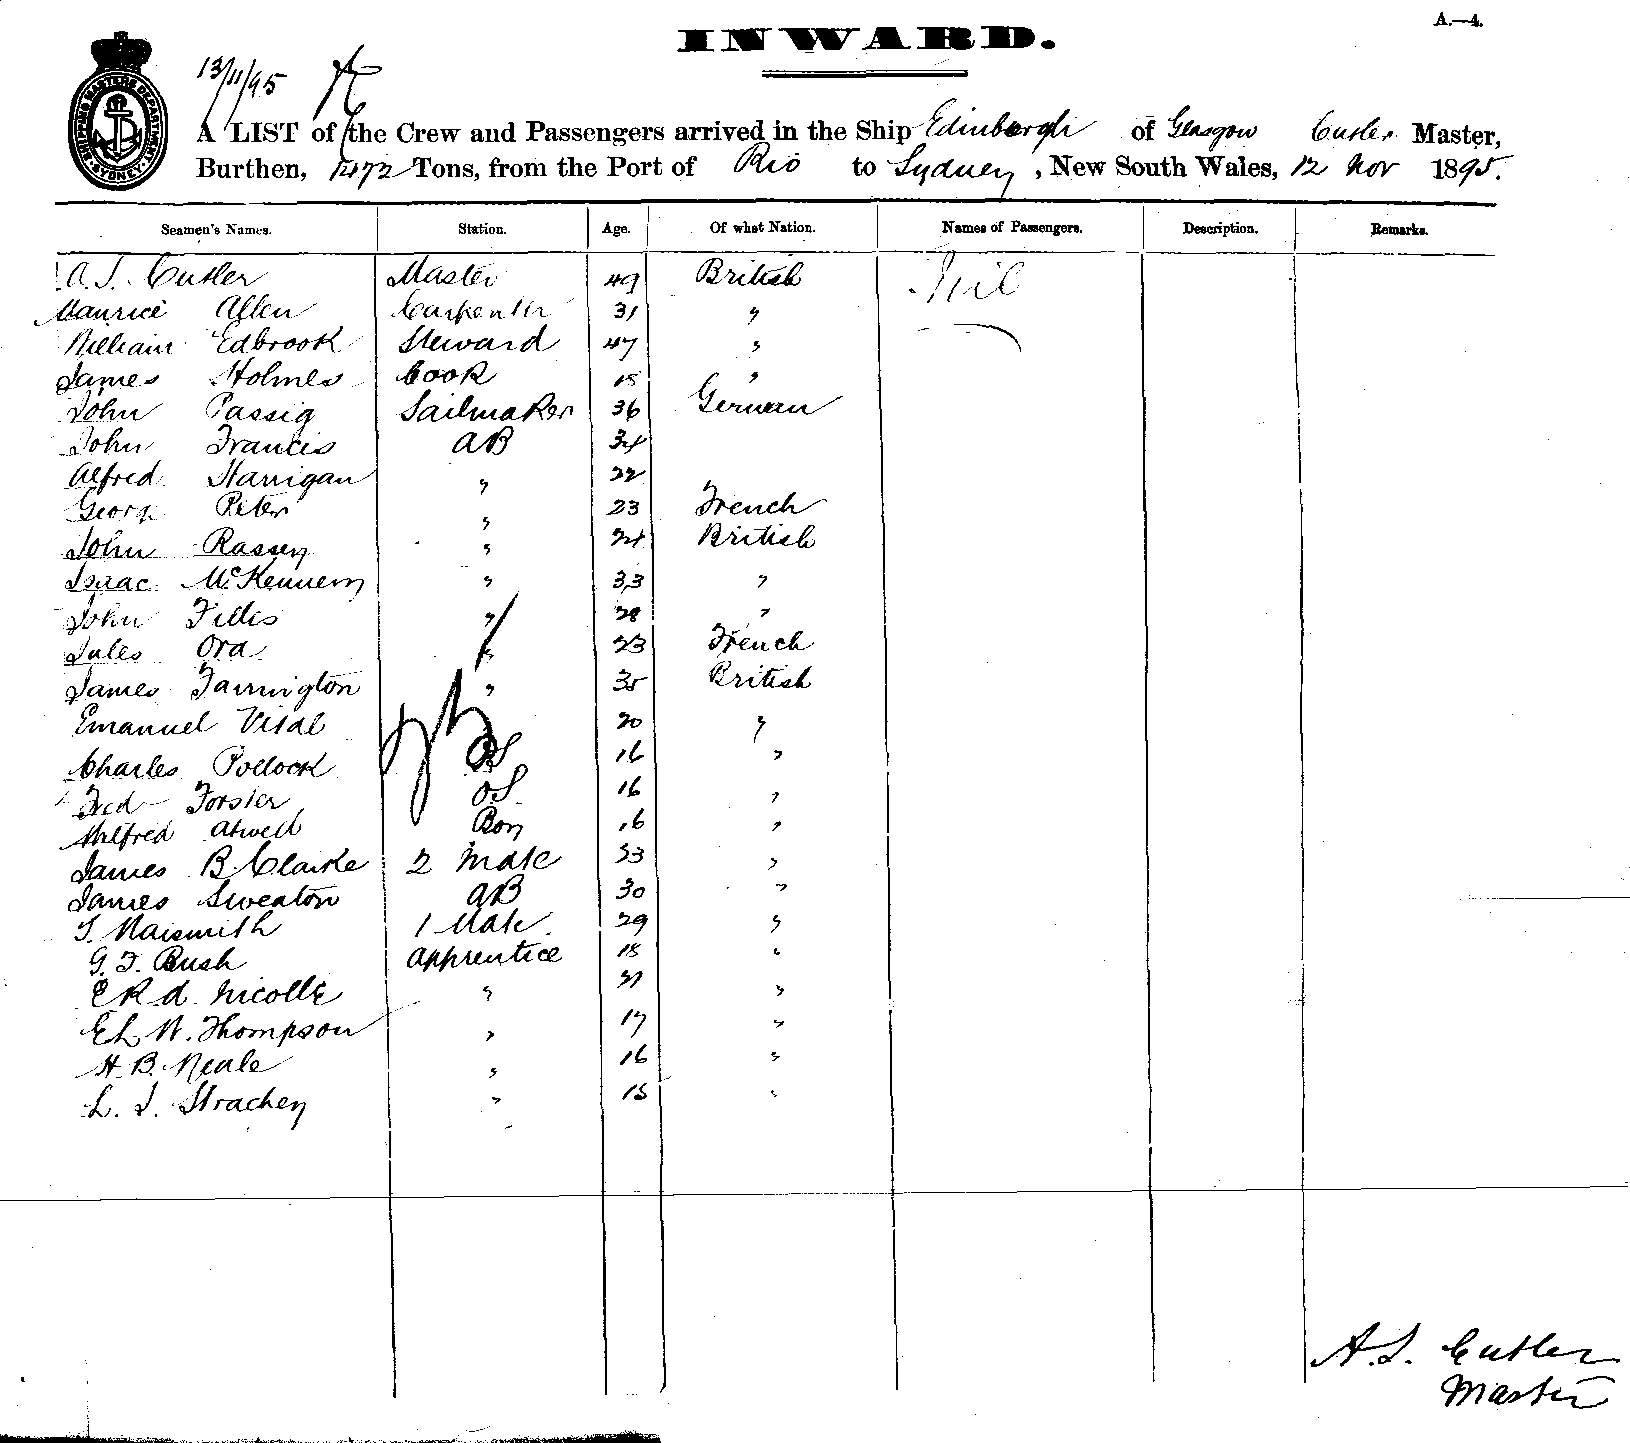 A.—4.
INWARD.
SHIPPING MASTERS DEPARTMENT. SYDNEY.
13/11/95
A LIST of the Crew and Passengers arrived in the Ship Edinburgh of Glasgow Cutler Master,
Burthen, Tons, from the Port of Rio to Sydney, New South Wales, 12 Nov 1895.
Seamen's Names. Station. Age. Of what Nation. Names of Passengers. Description. Remarks.
A. S. Cutler Master 49 British Nil
Maurice Allen Carpenter 31 "
William Edbrook Steward 47 "
James Holmes Cook 18 "
John Passig Sailmaker 36 German
John Francis AB 34
Alfred Harrigan " 22
George Peter " 23 French
John Rassey " 24 British
Isaac McKennery " 33 "
John Fillis " 28 "
Jules Ora " 23 French
James Farrington " 35 British
Emanuel Vidal 20 "
Charles Pollock OS 16 "
Fred Forster OS 16 "
Wilfred Atwell Boy 16 "
James B. Clarke 2 Mate 33 "
James Sweaton AB 30 "
J. Naismith 1 Mate 29 "
G. F. Bush Apprentice 18 "
E R d. Nicolle " "
E L W. Thompson " 17 "
H. B. Neale " 16 "
L. J. Strachey " 15 "
A. S. Cutler
Master